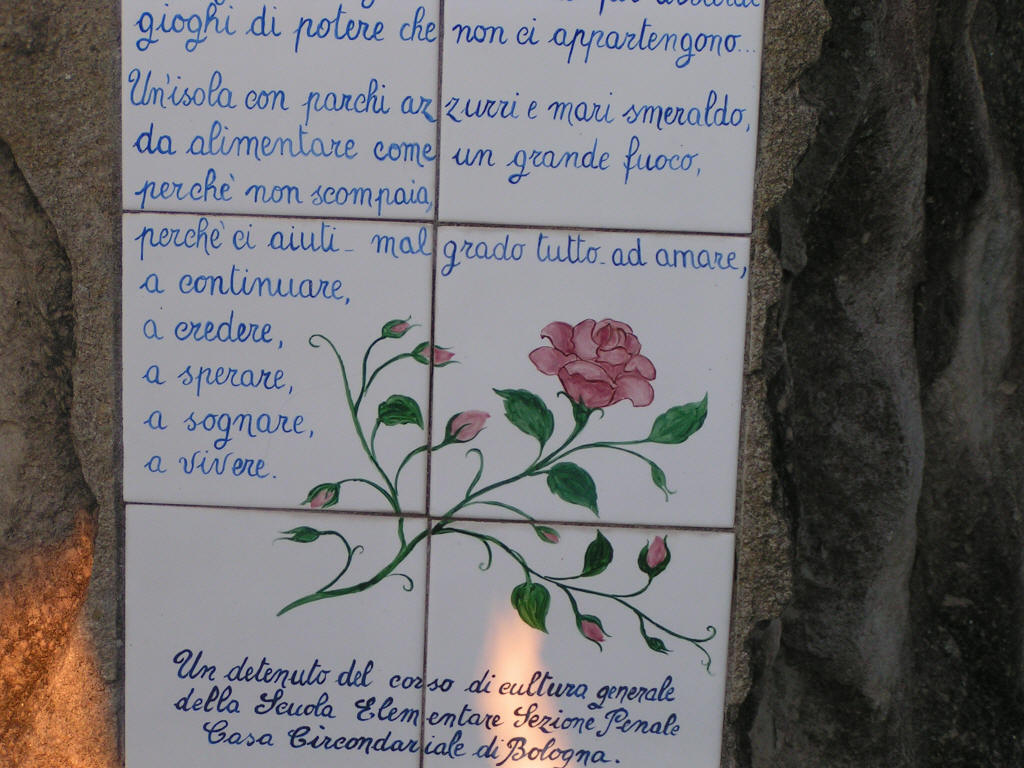 gioghi di potere che non ci appartengono...
Un'isola con parchi azzurri e mari smeraldo,
da alimentare come un grande fuoco,
perchè non scompaia,
perchè ci aiuti - malgrado tutto - ad amare,
a continuare,
a credere,
a sperare,
a sognare,
a vivere.
Un detenuto del corso di cultura generale
della Scuola Elementare Sezione Penale
Casa Circondariale di Bologna.